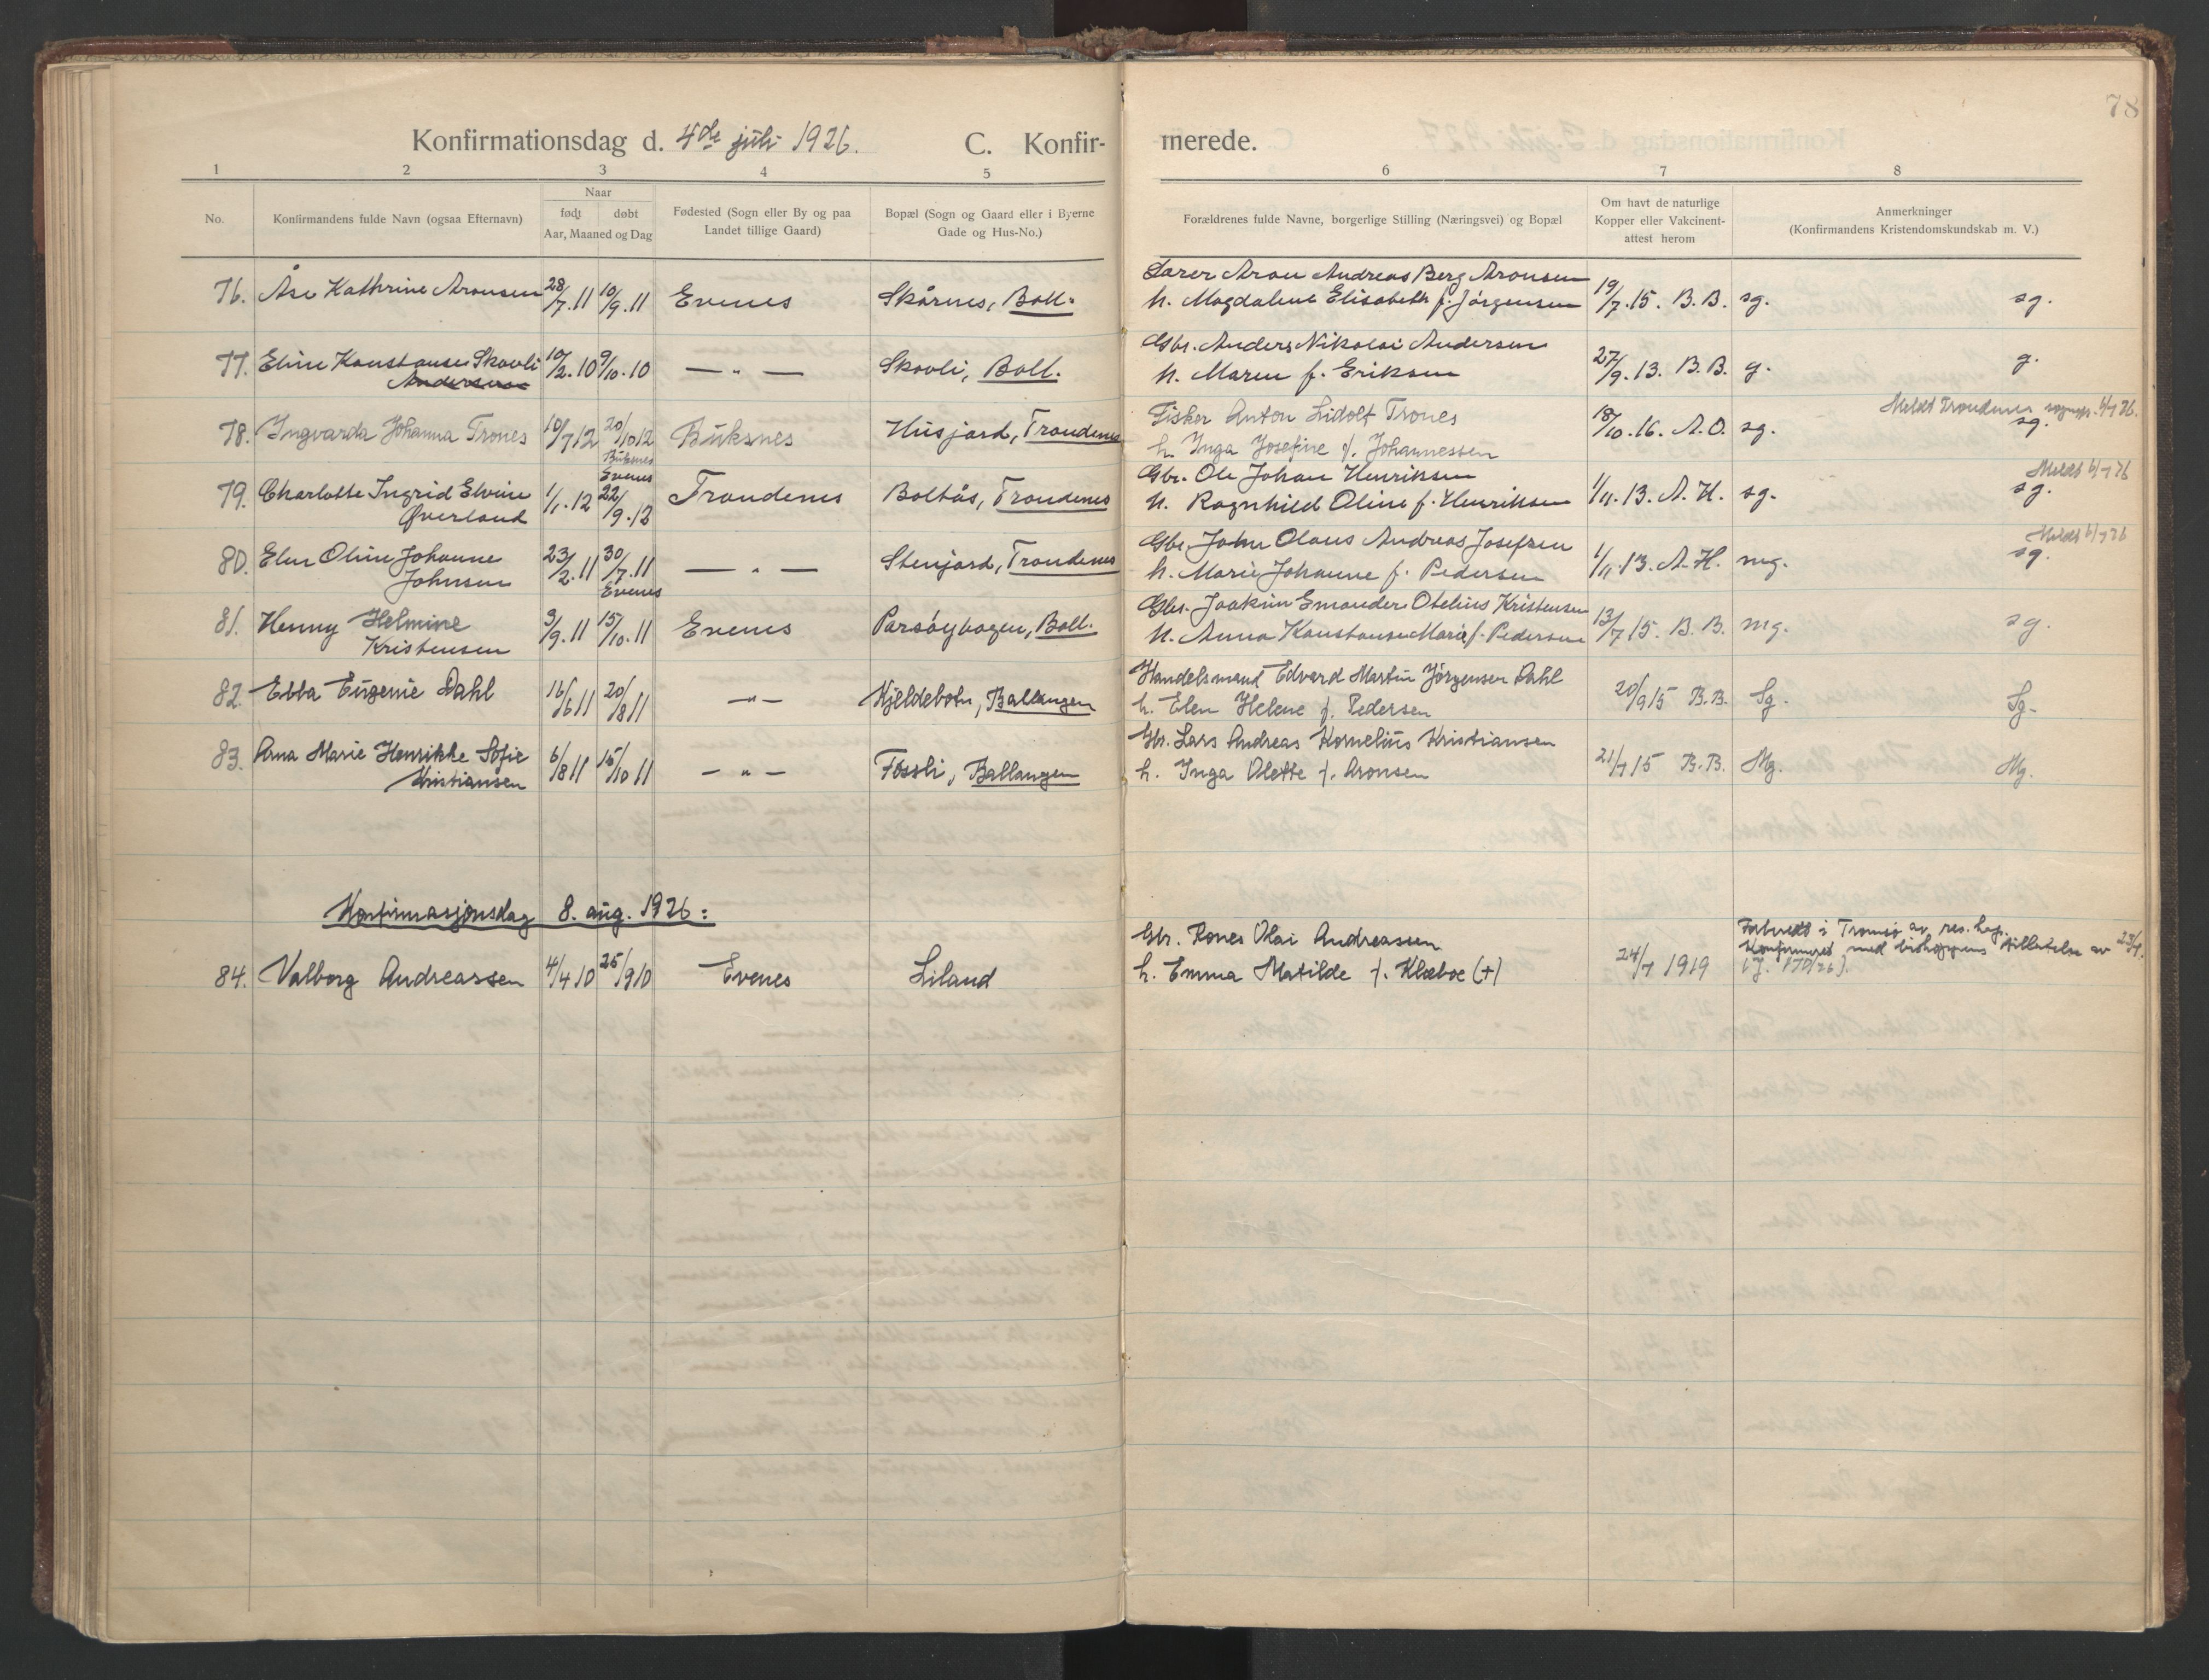 78
Konfirmationsdag d. 4de juli 1926. C. Konfirmerede.
1 2 3 4 5 6 7 8
No.
Konfirmandens fulde Navn (ogsaa Efternavn)
Naar
født døbt
Aar, Maaned og Dag
Fødested (Sogn eller By og paa
Landet tillige Gaard)
Bopæl (Sogn og Gaard eller i Byerne
Gade og Hus-No.)
Forældrenes fulde Navne, borgerlige Stilling (Næringsvei) og Bopæl
Om havt de naturlige
Kopper eller Vakcinent-
attest herom
Anmerkninger
(Konfirmandens Kristendomskundskab m. V.)
Lærer Aron Andreas Berg Aronsen
76. Åse Kathrine Aronsen 28/7.11 10/9.11 Evenes Skårnes, Ball. h. Magdalene Elisabeth f. Jørgensen 19/7.15. B.B. sg. sg.
Gbr. Anders Nikolai Andersen
77. Eline Konstanse Skovli 10/2.10 9/10.10 — " — Skovli, Ball. h. Maren f. Eriksen 27/9.13. B.B. g. g.
Andersen
Fisker Anton Lidolt Trones Meldt Trondenes sognepr. 6/7 26.
78. Ingvarda Johanna Trones 10/7 12 20/10 12 Buksnes Husjord, Trondenes h. Inga Josefine f. Johannessen 18/10.16. A.O. sg. sg.
Buksnes
Evenes
Gbr. Ole Johan Henriksen Meldt 6/7 26
79. Charlotte Ingrid Elvine 1/1.12 22/9.12 Trondenes Boltås, Trondenes h. Ragnhild Oline f. Henriksen 1/11.13. A.H. sg. sg.
Øverland
Gbr. John Olaus Andreas Josefsen Meldt 6/7 26
80. Elen Oline Johanne 23/2.11 30/7.11 — " — Stenjord, Trondenes h. Marie Johanne f. Pedersen 1/11.13. A.H. mg. sg.
Johnsen Evenes
Gbr. Joakim Emander Otelius Kristensen
81. Henny Helmine 3/9.11 15/10.11 Evenes Parsøyhagen, Ball. h. Anna Konstanse Marie f. Pedersen 13/7 15. B.B. mg. sg.
Kristensen
Handelsmand Edvard Martin Jørgensen Dahl
82. Ebba Eugenie Dahl 16/6 11 20/8 11 — " — Kjeldebotn, Ballangen h. Elen Helene f. Pedersen 20/9 15 B.B. Sg. Sg.
Gbr. Lars Andreas Kornelius Kristiansen
83. Arna Marie Henrikke Sofie 6/8 11 15/10 11 — " — Fossli, Ballangen h. Inga Olette f. Aronsen 21/7 15 B.B. Mg. Mg.
Kristiansen
Konfirmasjonsdag 8. aug. 1926:
Gbr. Rones Olai Andreassen Forberedt i Tromsø av res. kap.
84. Valborg Andreassen 4/4 10 25/9 10 Evenes Liland h. Emma Matilde f. Klæboe (+) 24/7 1919 Konfirmeret med biskoppens tillatelse av 23/7.
(J. 170/26).